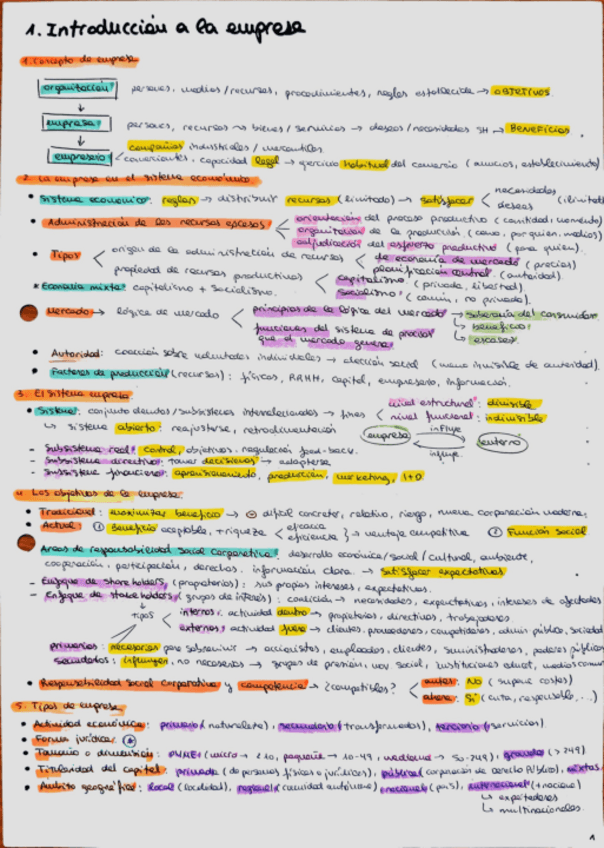 1. Introducción a la empresa
1. Concepto de empresa
organización: personas, medios/recursos, procedimientos, reglas establecida → OBJETIVOS.
empresa: personas, recursos → bienes/servicios → deseos/necesidades SH → BENEFICIOS
compañías industriales/mercantiles.
empresario: comerciantes, capacidad legal → ejercicio habitual del comercio (anuncios, establecimiento)
2. La empresa en el sistema económico.
necesidades
• Sistema económico: reglas → distribuir recursos (limitado) → satisfacer
deseos
orientación del proceso productivo (cantidad, momento)
• Administración de los recursos escasos
organización de la producción (como, por quien, medios)
adjudicación del esfuerzo productivo (para quien).
• Tipos
origen de la administración de recursos
de economía de mercado (precios)
planificación central (autoridad)
propiedad de recursos productivos
capitalismo: (privada, libertad)
socialismo: (común, no privada).
* Economía mixta: capitalismo + socialismo.
Mercado → lógica de mercado
principios de la lógica del mercado → soberanía del consumidor
↳ beneficios
↳ escasez
funciones del sistema de precios que el mercado genera
• Autoridad: coacción sobre voluntades individuales → elección social (mano invisible de autoridad).
• Factores de producción (recursos): físicos, RRHH, capital, empresario, información.
3. El sistema empresa
nivel estructural: divisible
• Sistema: conjunto elementos/subsistemas interrelacionados → fines
nivel funcional: indivisible
↳ sistema abierto: reajustarse, retroalimentación
empresa influye entorno
influye
- Subsistema real: control, objetivos, regulación feed-back.
- Subsistema directivo: tomar decisiones → adaptarse
- Subsistema financiero: aprovisionamiento, producción, marketing, I+D
4. Los objetivos de la empresa.
• Tradicional: maximizar beneficio → difícil concretar, relativo, riesgo, nueva corporación moderna.
• Actual ① Beneficio aceptable, + riqueza
eficacia
eficiencia
→ ventaja competitiva ② Función social
Áreas de responsabilidad social corporativa: desarrollo económico/social/cultural, ambiente,
cooperación, participación, derechos. información clara → satisfacer expectativas
- Enfoque de shareholders, (propietarios): sus propios intereses, expectativas.
- Enfoque de stakeholders (grupos de interés): coalición → necesidades, expectativas, intereses de afectados
tipos
internos: actividad dentro → propietarios, directivos, trabajadores
externos: actividad fuera → clientes, proveedores, competidores, admin pública, sociedad
primarios: necesarios para sobrevivir → accionistas, empleados, clientes, suministradores, poderes públicos
secundarios: influyen, no necesarios → grupos de presión, uov social, instituciones educat, medios comun
• Responsabilidad Social Corporativa y competencia → ¿compatibles?
antes: No (supone costes)
ahora: Sí (cuita, responsable, ...)
5. Tipos de empresa
• Actividad económica: primario (naturaleza), secundario (transformados), terciario (servicios)
• Forma jurídica:
• Tamaño o dimensión: PYMES (micro → <10, pequeña → 10-49, mediana → 50-249), grande (>249)
• Titularidad del capital: privada (de personas físicas o jurídicas), pública (corporación de derecho Público), mixtas
• Ámbito geográfico: local (localidad), regional (comunidad autónoma) nacional (país), internacional (+naciones)
↳ exportadores
↳ multinacionales.
1